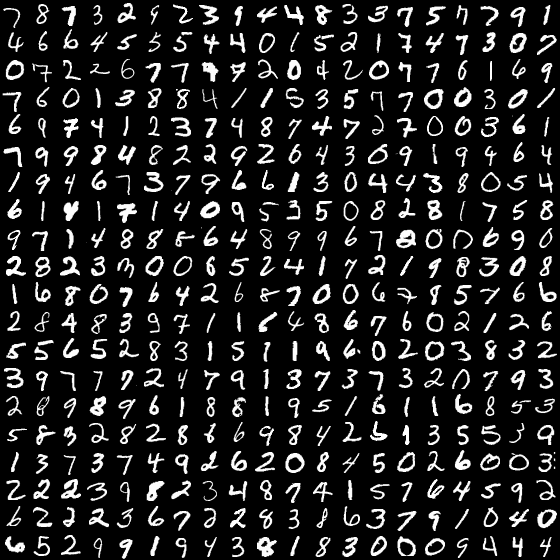 7 8 7 3 2 9 2 3 9 4 4 8 3 3 7 5 7 7 9 1
4 6 6 4 5 5 5 4 4 0 1 5 2 1 7 4 7 3 0 7
0 7 2 2 6 7 7 9 7 2 0 4 2 0 7 7 6 1 6 9
7 6 0 1 3 8 8 4 1 1 5 3 5 7 7 0 0 3 0 1
6 9 7 4 1 2 3 7 4 8 7 4 7 2 7 0 0 3 6 1
7 9 9 8 4 8 2 2 9 2 6 4 3 0 9 1 9 4 6 4
1 9 4 6 7 3 7 9 6 6 1 3 0 4 4 3 8 0 5 4
6 1 9 1 7 1 4 0 9 5 3 5 0 8 2 8 1 7 5 8
9 7 1 4 8 8 5 6 4 8 9 9 6 7 2 0 0 6 9 0
2 8 2 3 3 0 0 6 5 2 4 1 7 2 1 9 8 3 0 8
1 6 8 0 7 6 4 2 6 8 7 0 0 6 7 8 5 7 6 6
2 8 4 8 3 9 7 1 1 6 4 8 6 7 6 0 2 1 2 6
5 5 6 5 2 8 3 1 5 7 1 9 6 0 2 0 3 8 3 2
3 9 7 7 7 2 4 7 9 1 3 7 3 7 3 2 0 7 9 3
2 8 9 8 9 6 1 8 8 1 9 5 1 6 1 1 6 8 5 3
5 8 3 2 8 2 8 6 6 9 8 4 2 6 1 3 5 5 3 9
1 3 7 3 7 4 9 2 6 2 0 8 4 5 0 2 6 0 0 3
2 2 2 3 9 8 2 3 4 8 7 4 1 5 7 6 4 5 9 2
6 2 2 2 3 6 7 2 2 8 3 8 6 3 7 9 1 0 4 0
6 5 2 9 9 1 9 4 3 8 1 8 3 0 0 0 9 4 4 4